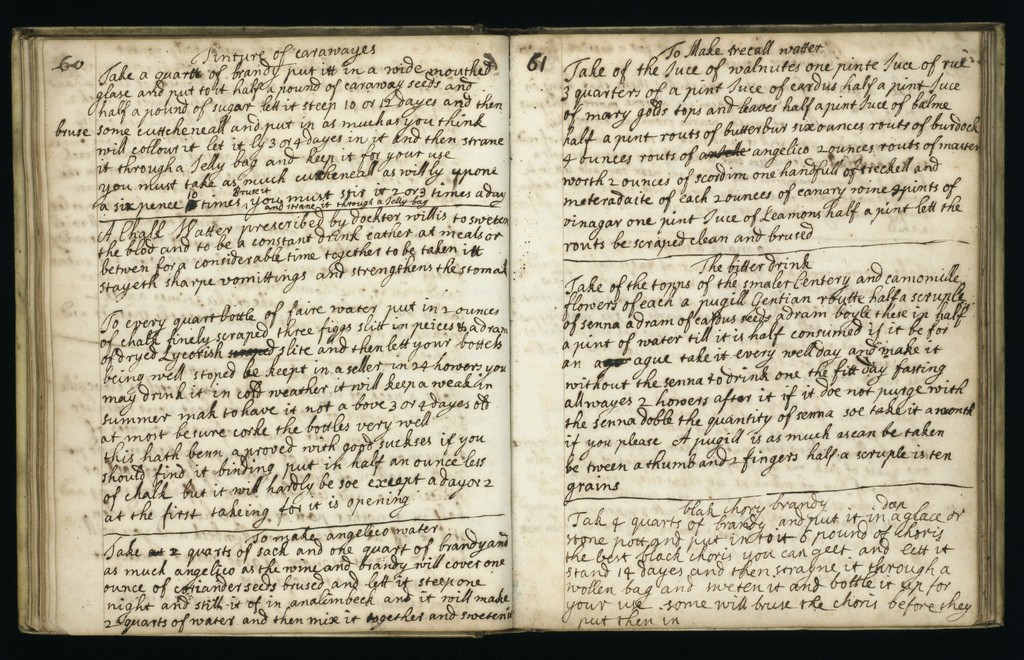 60
Tinture of carawayes
Take a quart of brandy put itt in a wide mouthed
glase and put to it half a pound of caraway seeds and
half a pound of sugar lett it steep 10 or 12 dayes and then
bruse some cuttcheneall and put in as much as you think
will collour it let it ly 3 or 4 dayes in it and then strane
it through a Jelly bag and keep it for your use
you must take as much cuttcheneall as will ly upone
a six pence 10 times Bruse it you must stir it 2 or 3 times a day
and strane it through a Jelly bag
A Chalk Watter prescribed by docktor willis to sweten
the blod and to be a constant drink eather at meals or
betwen for a considerable time together to be taken itt
stayeth sharpe vomittings and strengthens the stomak
To every quart bottle of faire water put in 2 ounces
of chalk finely scraped three figgs slitt in peices & a dram
of dryed Lycorish scraped slite and then lett your bottels
being well stoped be keept in a seller in 24 howers you
may drink it in cold weather it will keep a weak in
summer mak to have it not a bove 3 or 4 dayes old
at most be sure corke the bottles very well
this hath benn aproved with good suckses if you
should find it binding put in half an ounce less
of chalk but it will hardly be soe except a day or 2
at the first takeing for it is opening
To make angelico water
Take 2 quarts of sack and one quart of brandy and
as much angelico as the wine and brandy will cover one
ounce of coriander seeds brused and lett it steep one
night and still it of in an alimbeck and it will make
2 quarts of water and then mix it together and sweten it
61
To Make trecall watter
Take of the Juce of walnutes one pinte Juce of rue
3 quarters of a pint Juce of cardus half a pint Juce
of mary golds tops and leaves half a pint Juce of balme
half a pint routs of butterbur six ounces routs of burdock
4 ounces routs of angelico 2 ounces routs of master
worth 2 ounces of scordim one handfull of treckell and
meteradaite of each 2 ounces of canary wine 4 pints of
vinagar one pint Juce of Leamons half a pint lett the
routs be scraped clean and brused
The bitter drink
Take of the topps of the smaler Centery and camomille
flowers of each a pugill Gentian routte half a scruple
of senna a dram of cardus seeds a dram boyle these in half
a pint of water till it is half consumed if it be for
an ague take it every well day and make it
without the senna to drink one the fitt day fasting
all wayes 2 howers after it if it doe not purge with
the senna doble the quantity of senna soe take it a month
if you please A pugill is as much as can be taken
be tween a thumb and 2 fingers half a scruple is ten
grains
blak chory brandy
Tak 4 quarts of brandy and put it in a glace or
stone pott and put into it 6 pound of choris
the best black choris you can geet and lett it
stand 14 dayes and then strayne it through a
wollen bag and sweten it and bottle it up for
your use some will bruse the choris before they
put then in